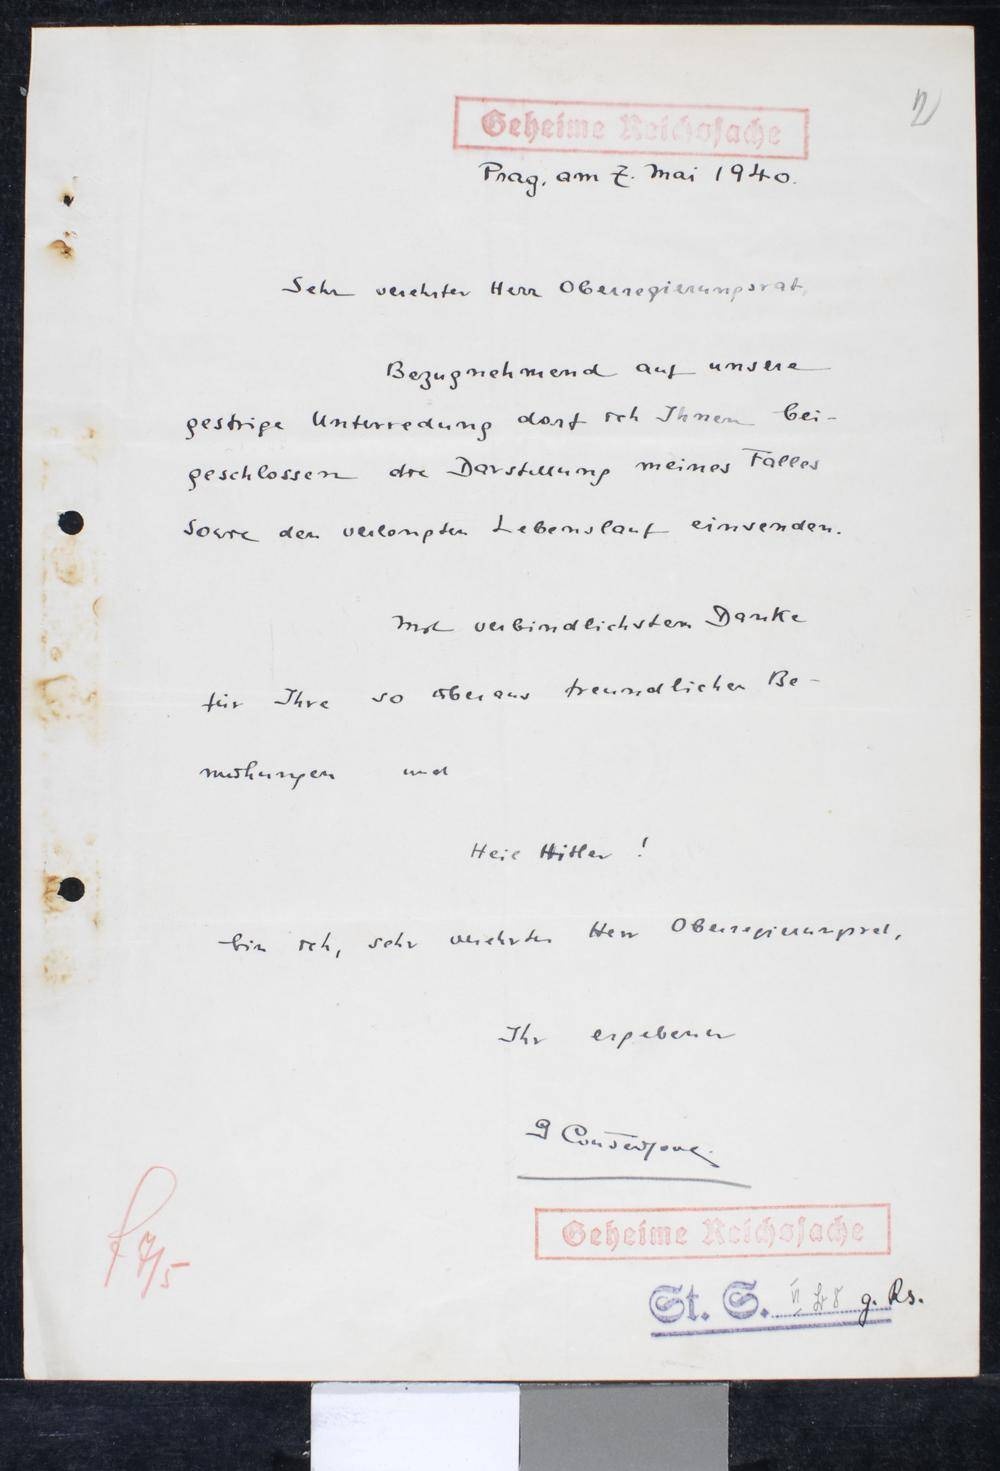 2
Geheime Reichssache
Prag, am 7. Mai 1940.
Sehr verehrter Herr Oberregierungsrat,
Bezugnehmend auf unsere
gestrige Unterredung darf ich Ihnen bei-
geschlossen die Darstellung meines Falles
sowie den verlangten Lebenslauf einsenden.
Mit verbindlichstem Danke
für Ihre so überaus freundlichen Be-
mühungen und
Heil Hitler !
bin ich, sehr verehrter Herr Oberregierungsrat,
Ihr ergebener
Geheime Reichssache
7/5
St. S. g. Rs.